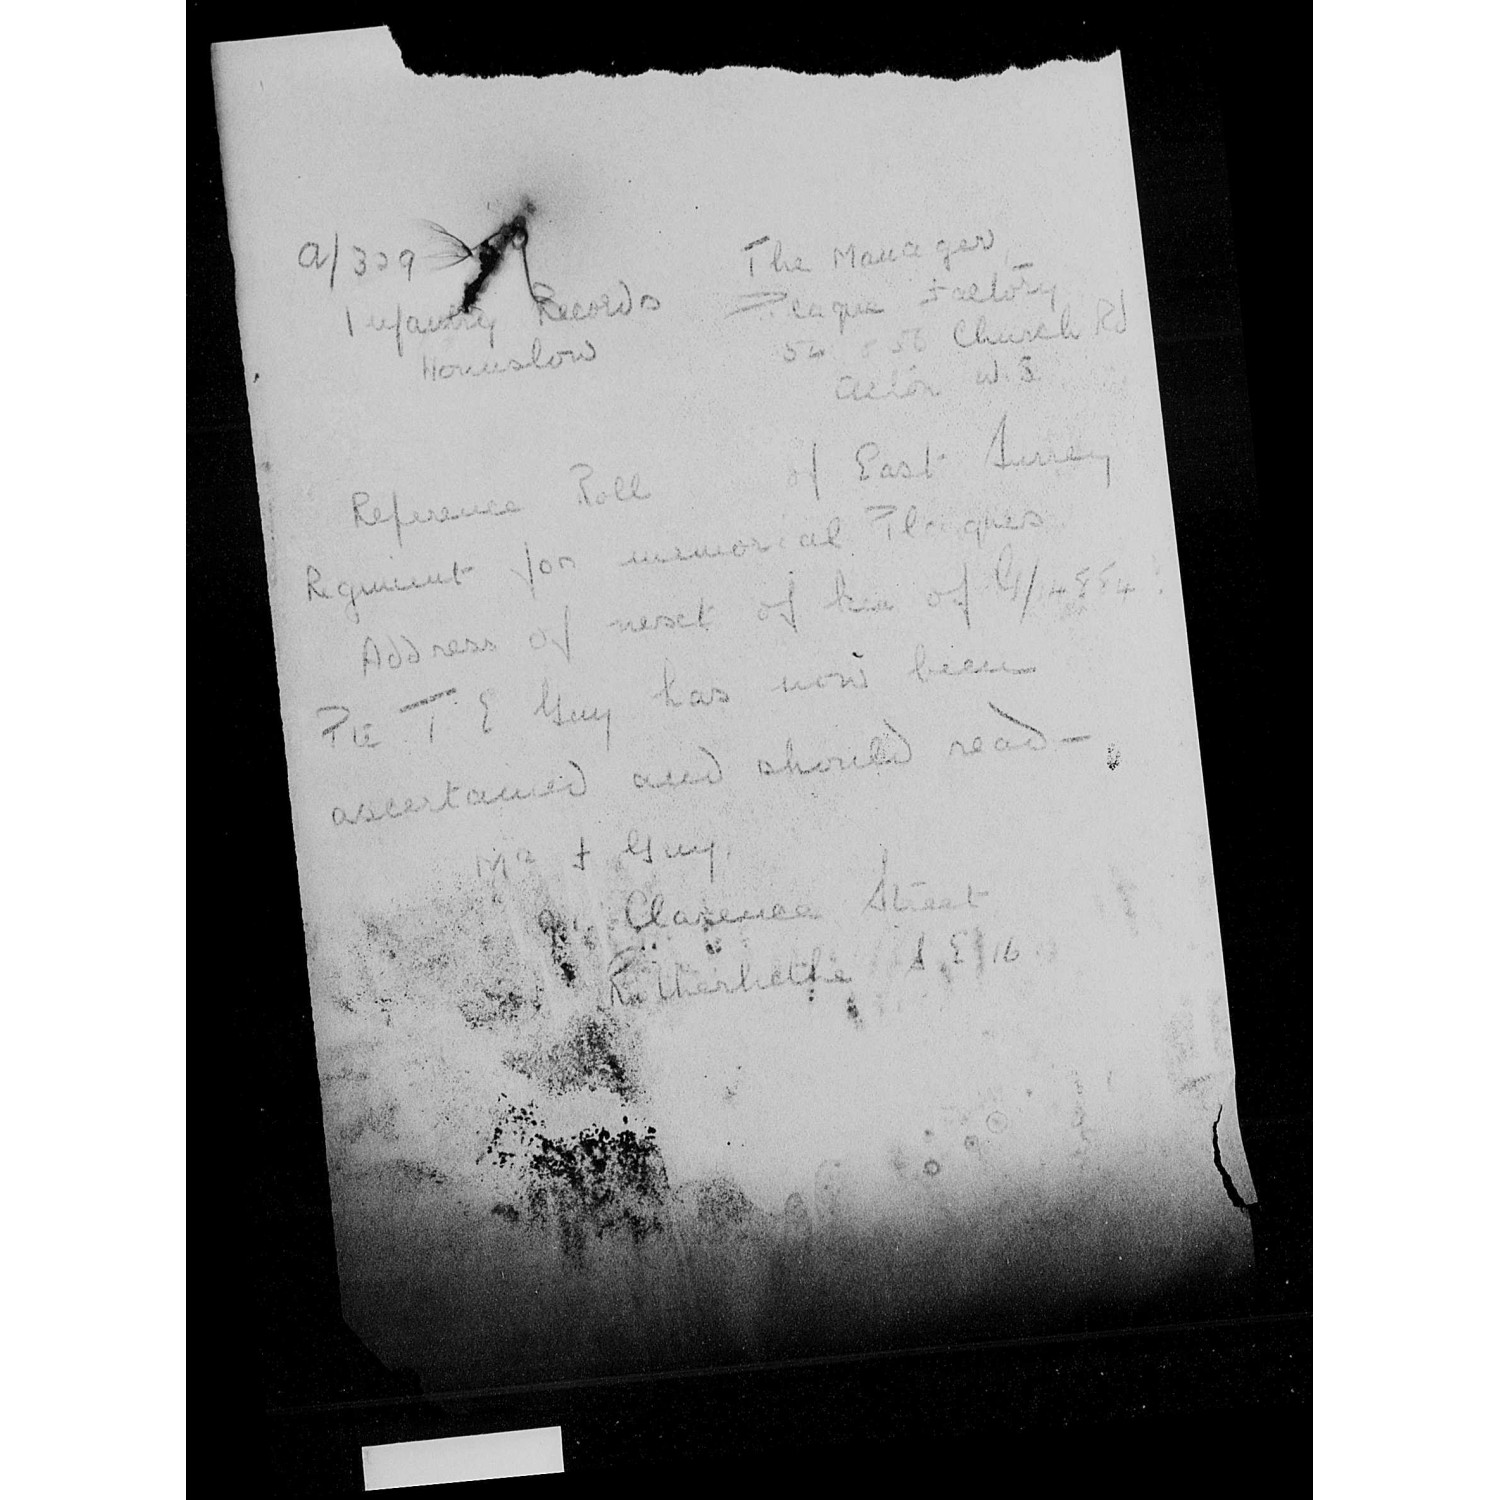 a/329
Infantry Records
Hounslow
The Manager
Plaque Factory
54 & 56 Church Rd
Acton W.3
Reference Roll of East Surrey
Regiment for memorial Plaques.
Address of next of kin of G/14884
Pte T. E Guy has now been
ascertained and should read —
Mr Guy
Clarence Street
Rotherhithe S.E 16.